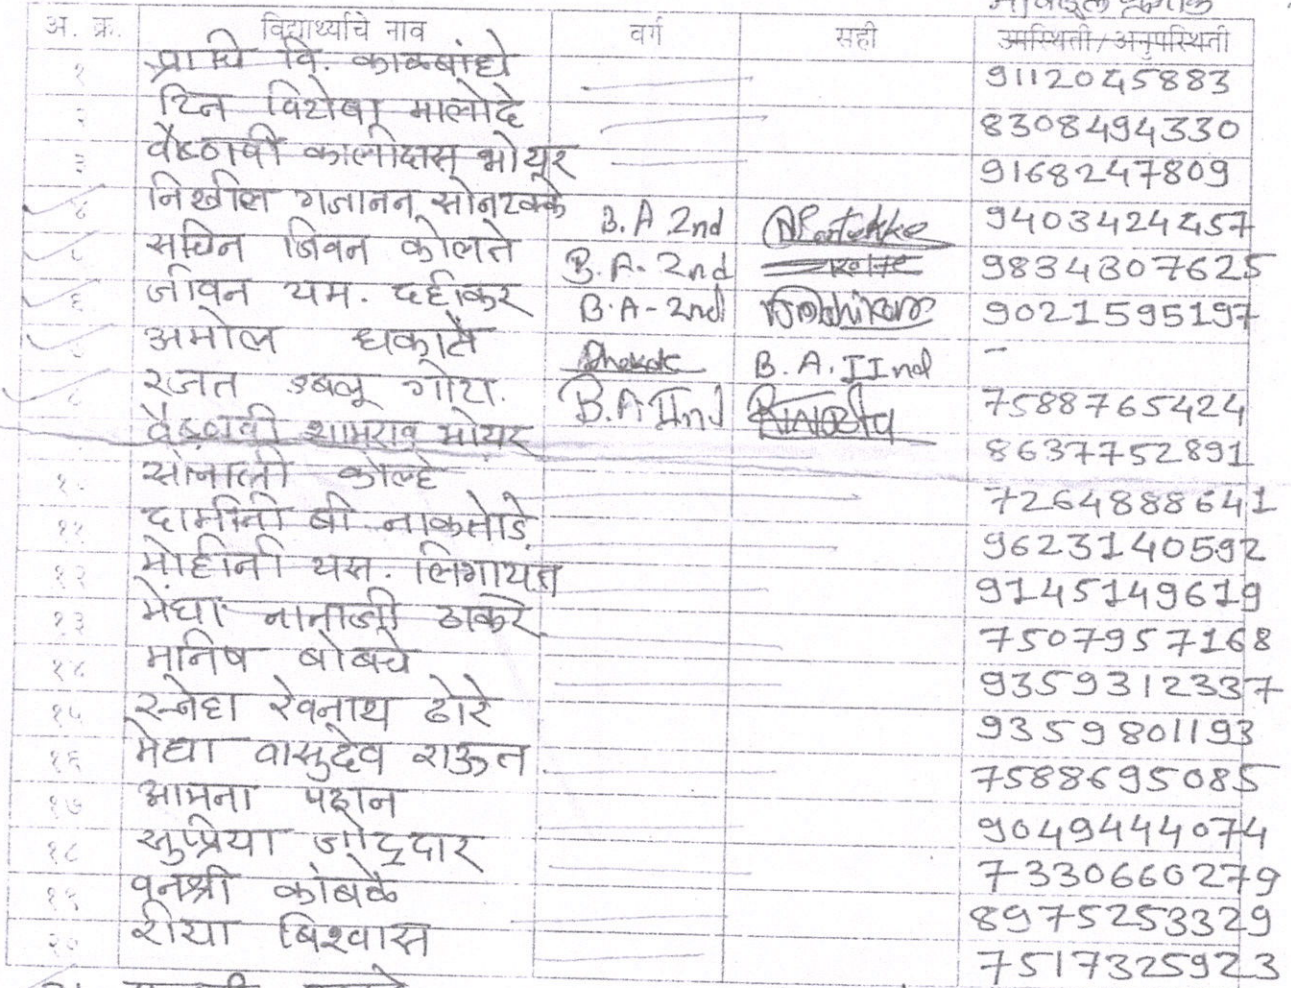 मोबाईल क्रमांक
अ. क्र. विद्यार्थ्याचे नाव वर्ग सही उपस्थिती/अनुपस्थिती
१ प्राचि वि. काळबांधे 9112045883
२ विठोबा मालोदे 8308494330
३ वैष्णवी कालीदास भोयर 9168247809
४ निखील गजानन सोनटक्के B.A.2nd 9403424457
५ सचिन जिवन कोलते B.A-2nd Kolte 9834307625
६ जीवन यम. दहीकर B.A-2nd 9021595197
७ अमोल धकाते Dhakate B.A.IInd -
८ रजत डबलू गोटा. B.A IInd 7588765424
वैष्णवी शामराव भोयर 8637752891
१० सोनाली कोल्हे 7264888641
११ दामीनी बी. नाकतोडे 9623140592
१२ मोहीनी यस. लिंगायत 9145149619
१३ मेघा नानाजी ठाकरे 7507957168
१४ मनिष बोबचे 9359312337
१५ स्नेहा रेवनाथ ढोरे 9359801193
१६ मेघा वासुदेव राऊत 7588695085
१७ आमना पठान 9049444074
१८ सुप्रिया जोद्दार 7330660279
१९ वनश्री कांबळे 8975253329
२० रीया बिश्वास 7517325923